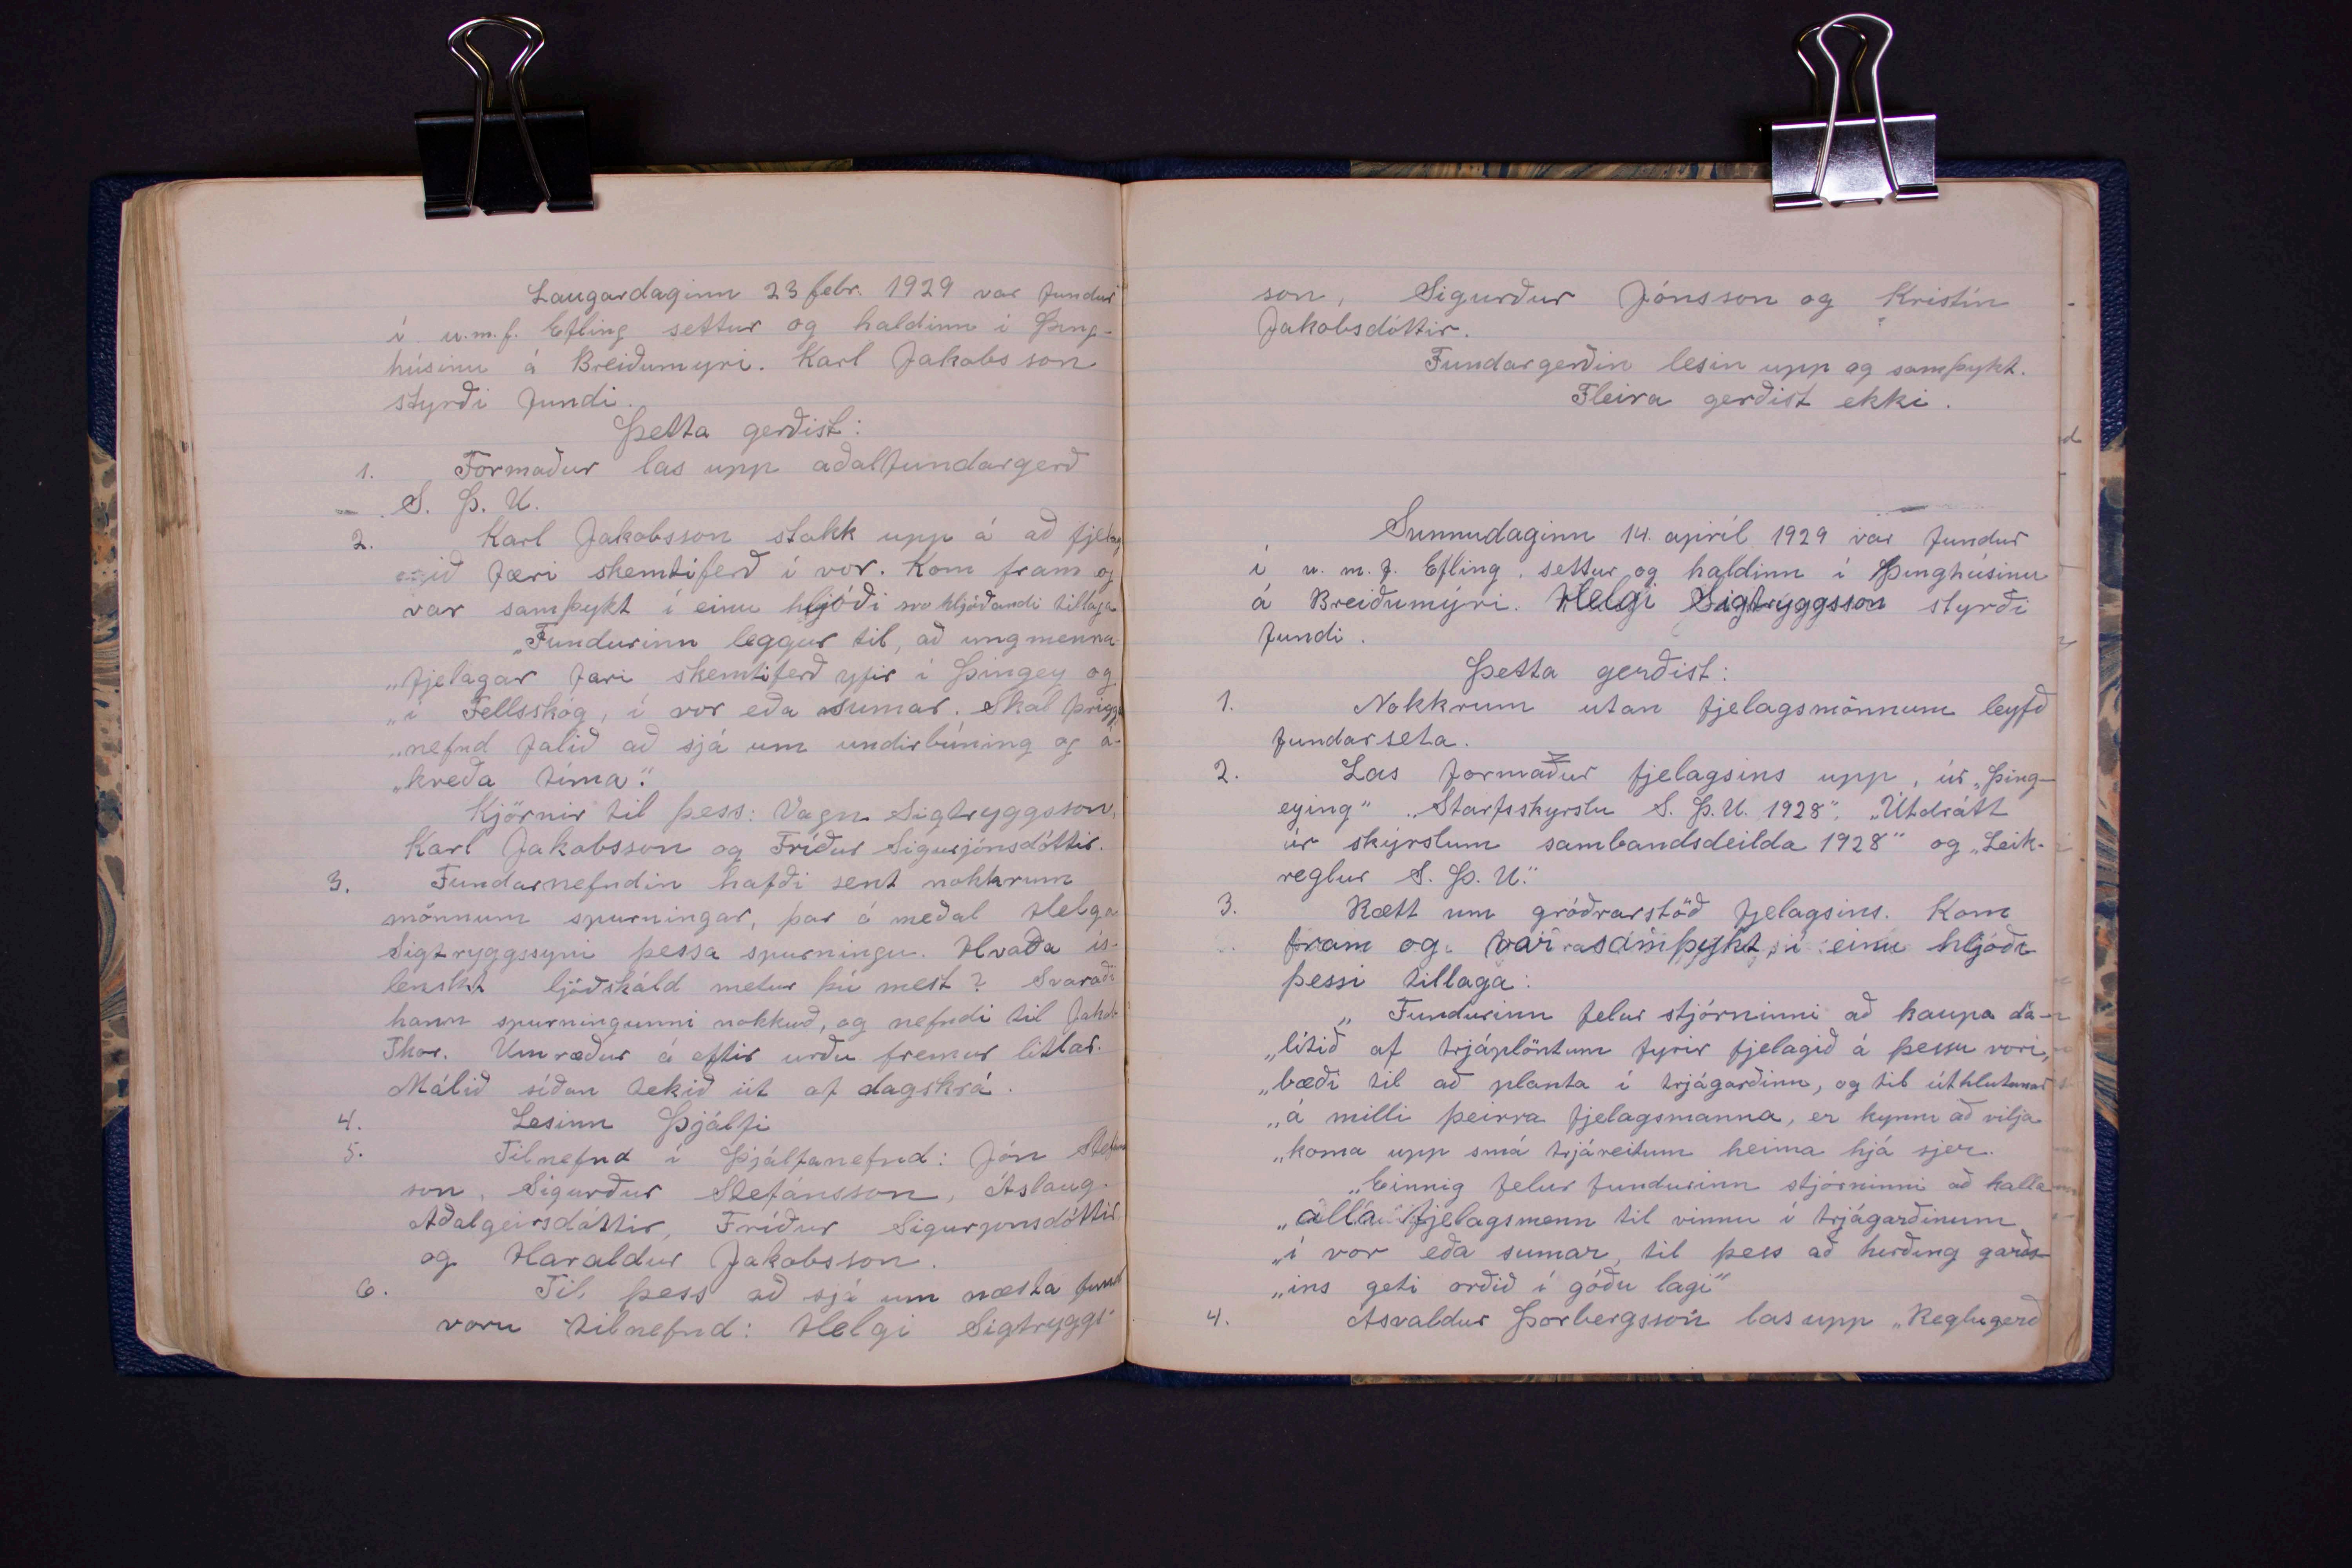 Laugardaginn 23 febr. 1929 var fundur
í u.m.f. Efling settur og haldinn i Þing-
húsinu á Breiðumyri. Karl Jakobsson
styrði fundi.
Þetta gerðist:
1. Formaður las upp aðalfundargerð
S. Þ. U.
2. Karl Jakobsson stakk upp á að fjelag
ið færi skemtiferð í vor. Kom fram og
var samþykt í einu hljóði svo hljóðandi tillaga
„Fundurinn leggur til, að ungmenna-
„fjelagar fari skemtiferð yfir í Þingey og
„í Fellsskóg, í vor eða sumar. Skal þriggja
„nefnd falið að sjá um undirbúning og á-
„kveða tíma."
Kjörnir til þess: Vagn Sigtryggsson,
Karl Jakobsson og Fríður Sigurjónsdóttir.
3. Fundarnefndin hafði sent nokkrum
mönnum spurningar, þar á meðal Helga
Sigtryggssyni þessa spurningu. Hvaða ís-
lenskt ljóðskáld metur þú mest? Svaraði
hann spurningunni nokkuð, og nefndi til Jakob
Thor. Umræður á eftir urðu fremur litlar.
Málið síðan tekið út af dagskrá.
4. Lesinn Þjálfi
5. Tilnefnd í Þjálfanefnd: Jón Stefáns
son, Sigurður Stefánsson, Áslaug
Aðalgeirsdóttir, Fríður Sigurjonsdóttir
og Haraldur Jakobsson.
6. Til þess að sjá um næsta fund
voru tilnefnd: Helgi Sigtryggs-
son, Sigurður Jónsson og Kristín
Jakobsdóttir.
Fundargerðin lesin upp og samþykt.
Fleira gerðist ekki.
Sunnudaginn 14. apríl 1929 var fundur
í u. m. f. Efling, settur og haldinn í Þinghúsinu
á Breiðumýri. Helgi Sigtryggsson styrði
fundi.
Þetta gerðist:
1. Nokkrum utan fjelagsmönnum leyfð
fundarseta.
2. Las formaður fjelagsins upp, úr „Þing-
eying" „Starfsskyrslu S. Þ. U. 1928", „Útdrátt
úr skýrslum sambandsdeilda 1928" og „Leik-
reglur S. Þ. U."
3. Rætt um gróðrarstöð fjelagsins. Kom
fram og var samþykt í einu hljóði
þessi tillaga:
„Fundurinn felur stjórninni að kaupa dá-
„lítið af trjáplöntum fyrir fjelagið á þessu vori,
„bæði til að planta í trjágarðinn, og til úthlutunar
„á milli þeirra fjelagsmanna, er kynni að vilja
„koma upp smá trjáreitum heima hjá sjer.
„Einnig felur fundurinn stjórninni að kalla
„alla fjelagsmenn til vinnu í trjágarðinum
„í vor eða sumar, til þess að hirðing garðs-
„ins geti orðið í góðu lagi"
4. Asvaldur Þorbergsson las upp „Reglugerð